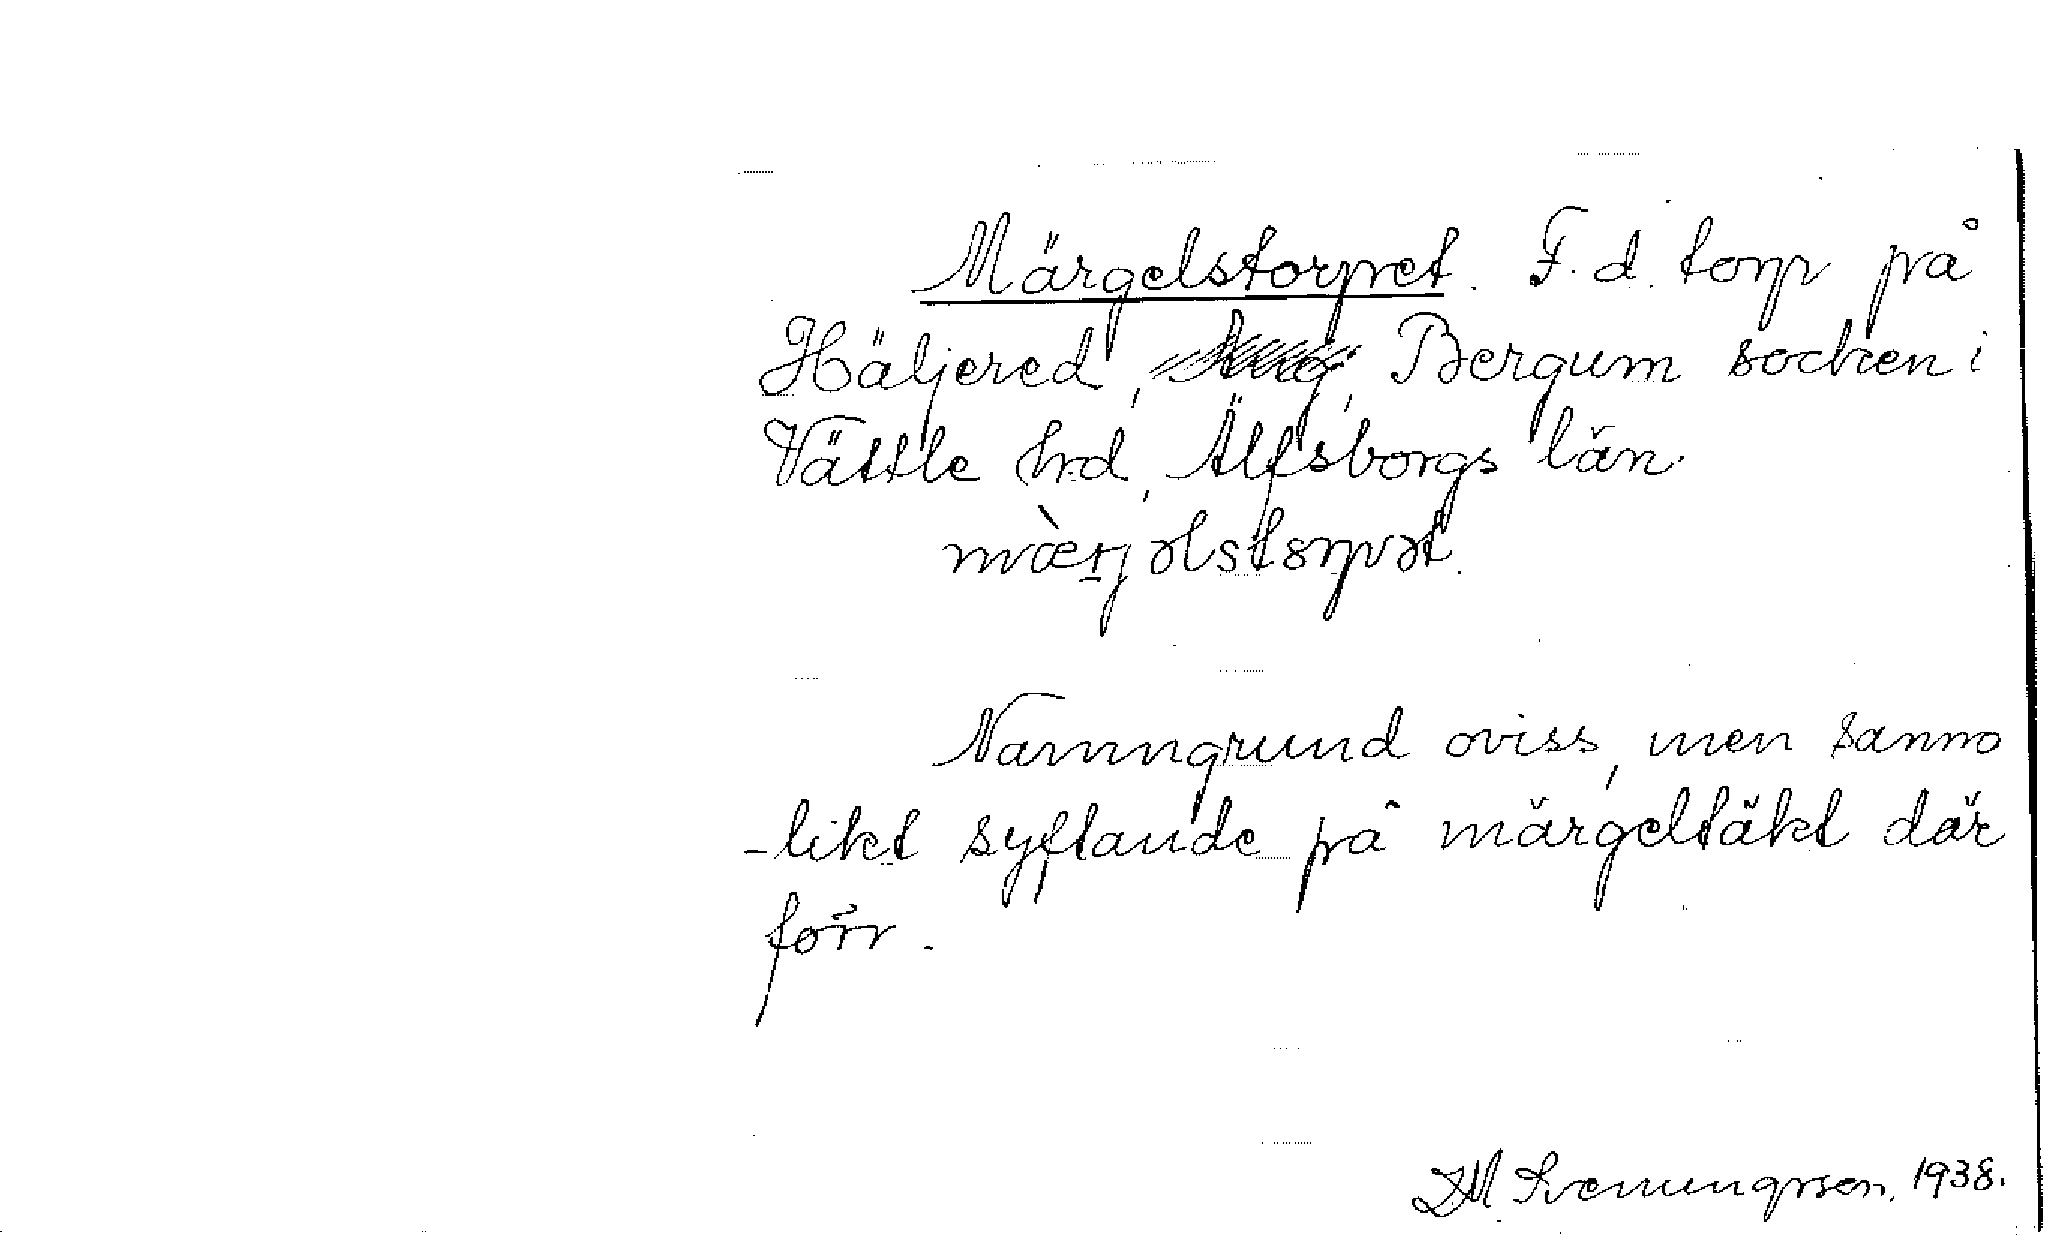 Märgelstorpet. F.d. torp på
Häljered, Bergum socken i
Vättle hrd, Älfsborgs län.
mæ̀rjəlstɔrpət.
Namngrund oviss, men sanno
-likt syftande på märgeltäkt där
förr.
Svenungsson, 1938.